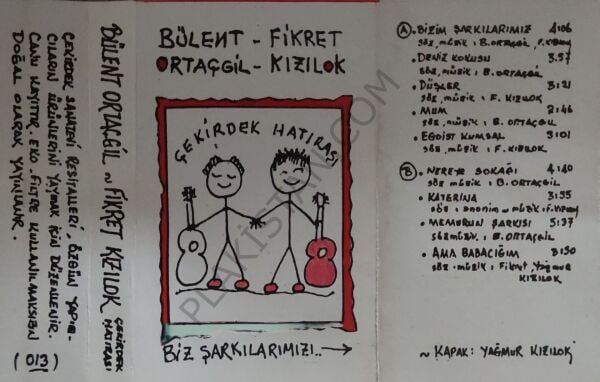 ÇEKİRDEK SANATEVİ RESİTALLERİ, ÖZGÜN YAPIM-
CILARIN ÜRÜNLERİNİ YAYMAK İÇİN DÜZENLENİR.
CANLI KAYITTIR. EKO, FİLTRE KULLANILMAKSIZIN
DOĞAL OLARAK YAYINLANIR.
(013)
BÜLENT ORTAÇGİL ~ FİKRET KIZILOK
ÇEKİRDEK
HATIRASI
BÜLENT - FİKRET
ORTAÇGİL - KIZILOK
ÇEKİRDEK HATIRASI
BİZ ŞARKILARIMIZI..→
PLAKISTAN.COM
A . BİZİM ŞARKILARIMIZ 4:06
söz, müzik : B. ORTAÇGİL, F. KIZILOK
. DENİZ KOKUSU 3:57
söz, müzik : B. ORTAÇGİL
. DÜŞLER 3:21
söz, müzik : F. KIZILOK
. MUM 2:46
söz, müzik : B. ORTAÇGİL
. EGOİST KUMSAL 3:01
söz, müzik : F. KIZILOK
B . NEREYE SOKAĞI 4:40
söz müzik : B. ORTAÇGİL
. KATERİNA 3:55
söz : anonim ~ müzik : F. KIZILOK
. MEMURUN ŞARKISI 5:37
söz müzik : B. ORTAÇGİL
. AMA BABACIĞIM
söz . müzik : Fikret, Yağmur
KIZILOK
~ KAPAK : YAĞMUR KIZILOK